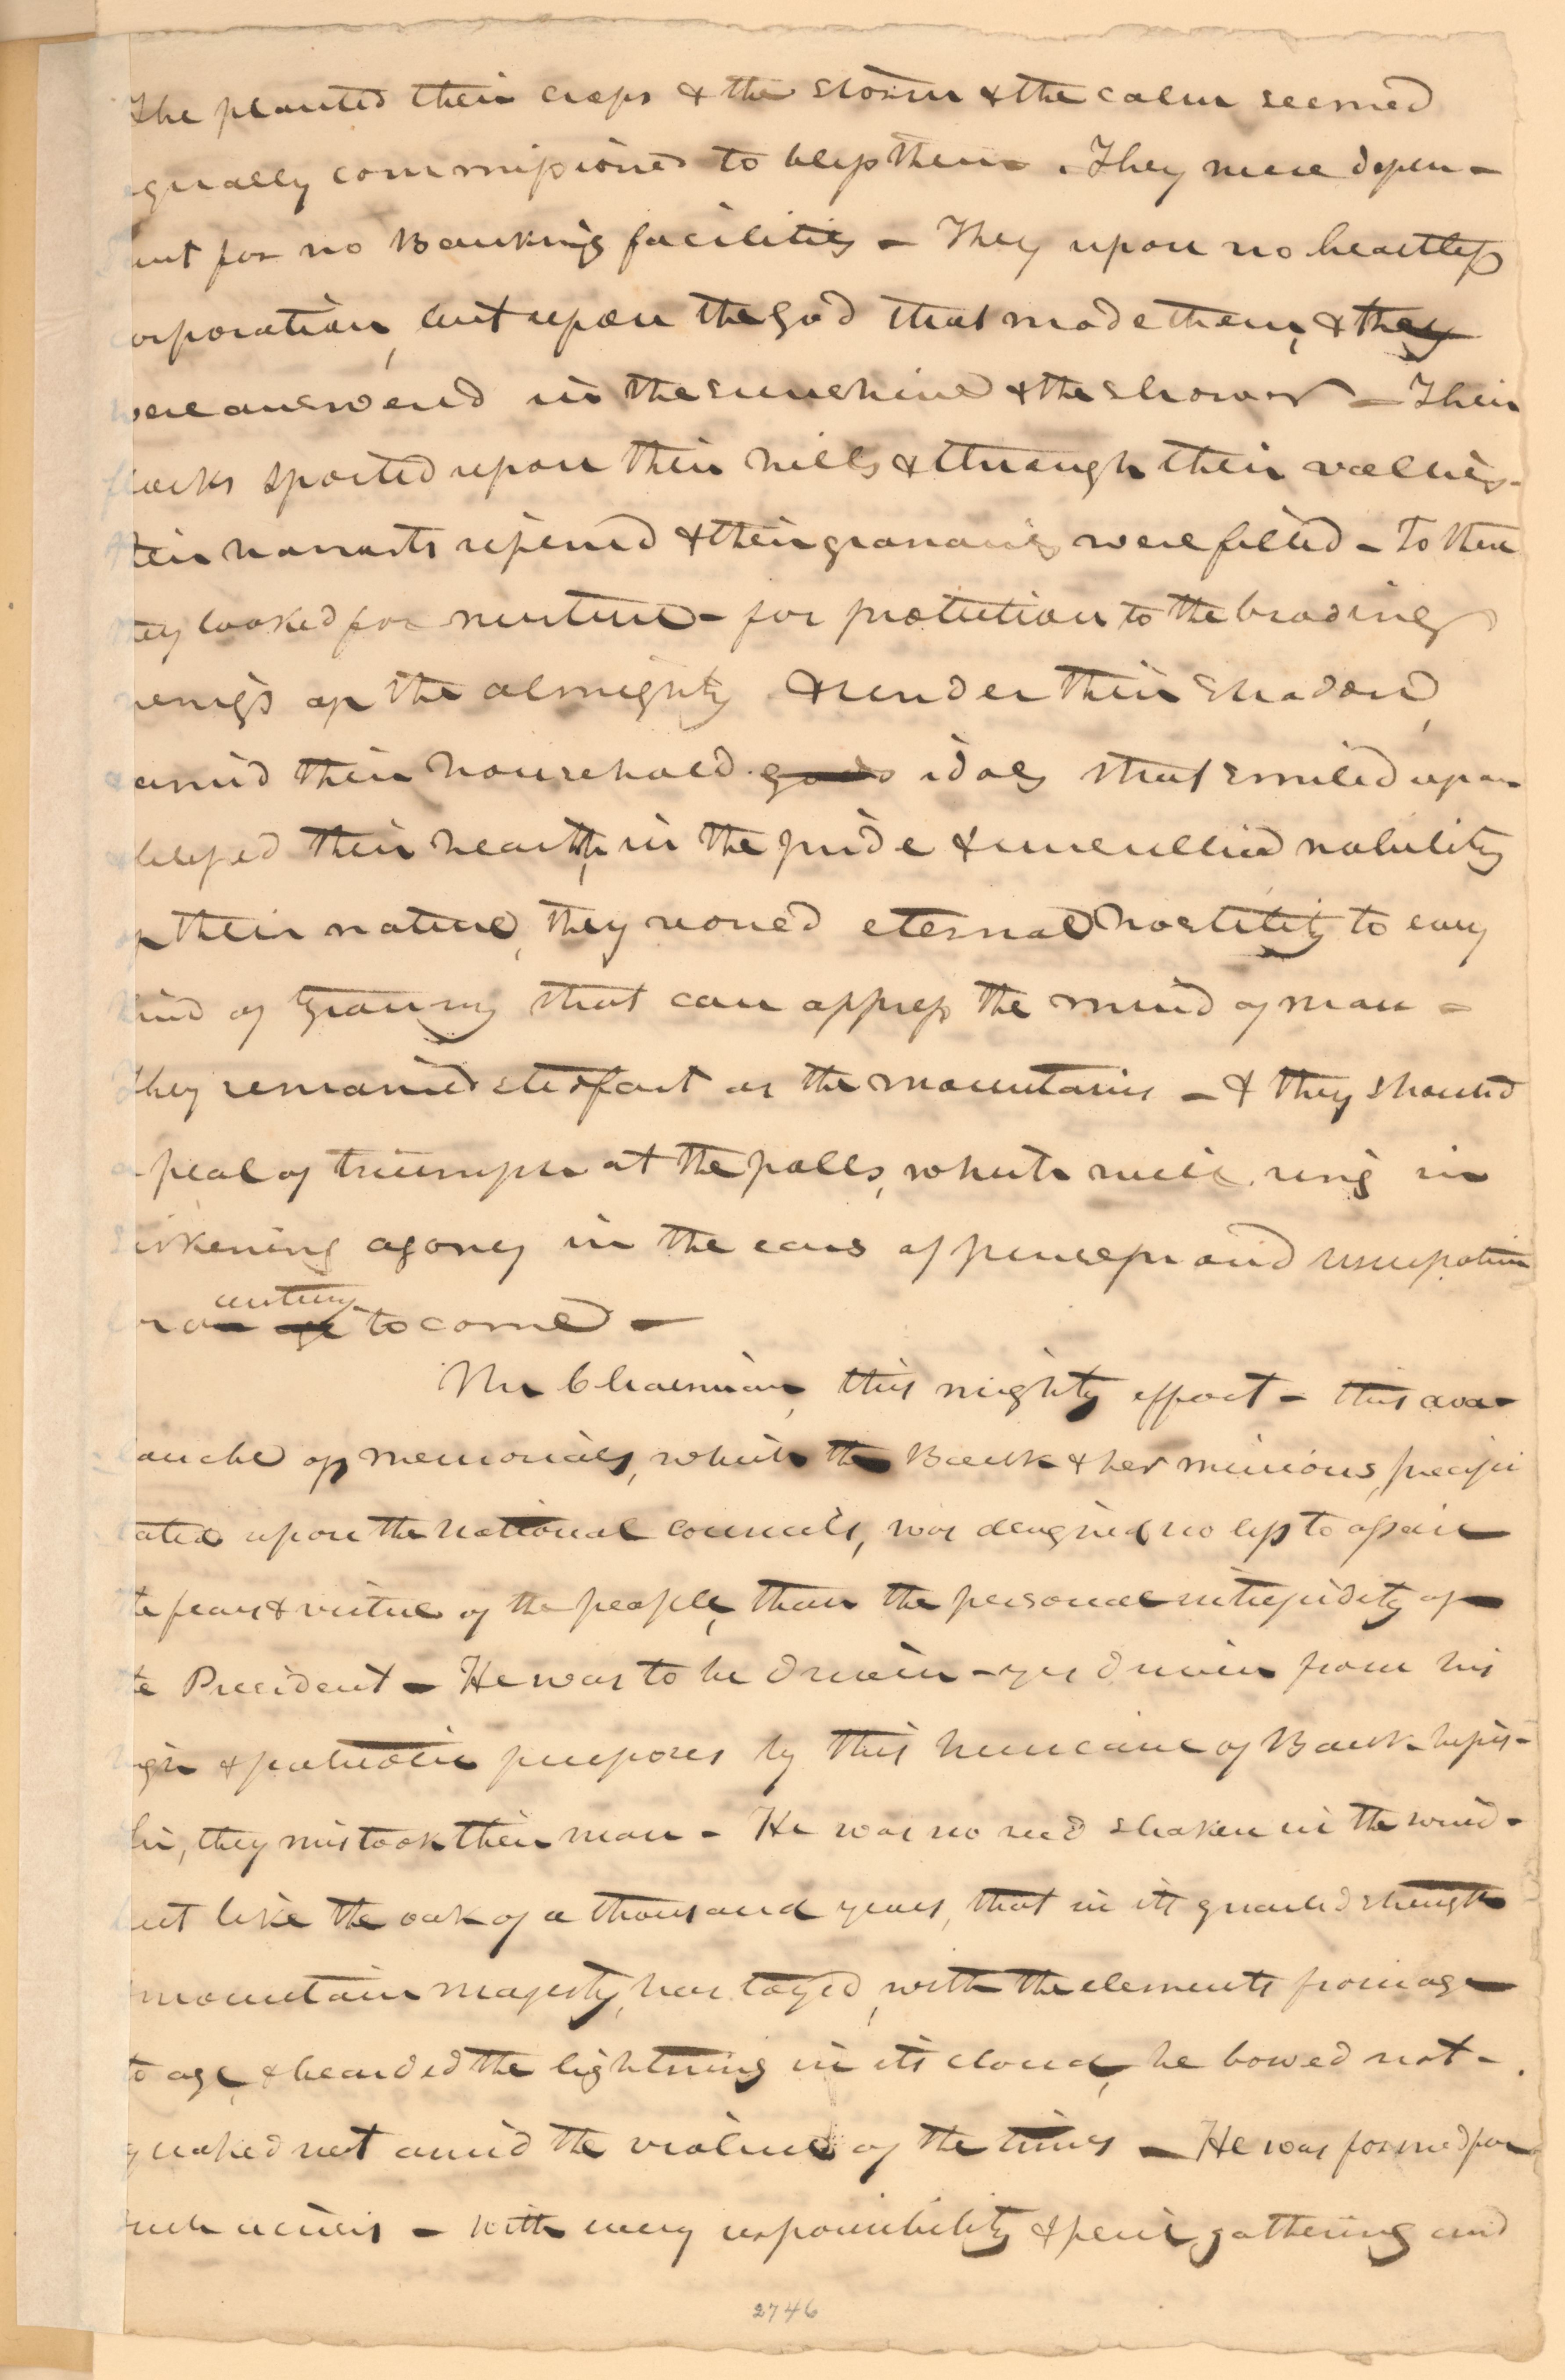 The planted their crops & the storm & the calm seemed
equally commissioned to bless them. They were depen-
dant for no Banking facilities - They upon no heartless
corporation, but upon the God that made them, & they
were answered in the sunshine & the shower - Their
flocks sported upon their hills & through their vallies -
their harvests ripened & their granaries were filled - To them
they looked for nurture - for protection to the brooding
wings of the almighty & under their shadow,
amid their household gods idols that smiled upon
& blessed their hearth, in the pride & unsullied nobility
of their nature, they vowed eternal hostility to every
kind of tyranny that can oppress the mind of man -
They remained stedfast as the mountains - & they shouted
a peal of triumph at the polls, which will ring in
sickening agony in the ears of purse proud usurpation
century
for an age to come -
Mr Chairman, this mighty effort - this ava-
lanche of memorials, which the Bank & her minions, precipi
tated upon the national councils, was designed no less to assail
the fears & virtue of the people, than the personal intrepidity of
the President - He was to be driven - yes driven from his
high & patriotic purposes by this hurricane of Bank
Sir, they mistook their man - He was no reed shaken in the wind -
but like the oak of a thousand years, that in its gnarled strength
& mountain majesty, has toyed, with the elements from age
to age, & bearded the lightning in its cloud, he bowed not -
quaked not amid the violence of the times - He was formed for
such a crisis - With every responsibility & peril, gathering and
2746